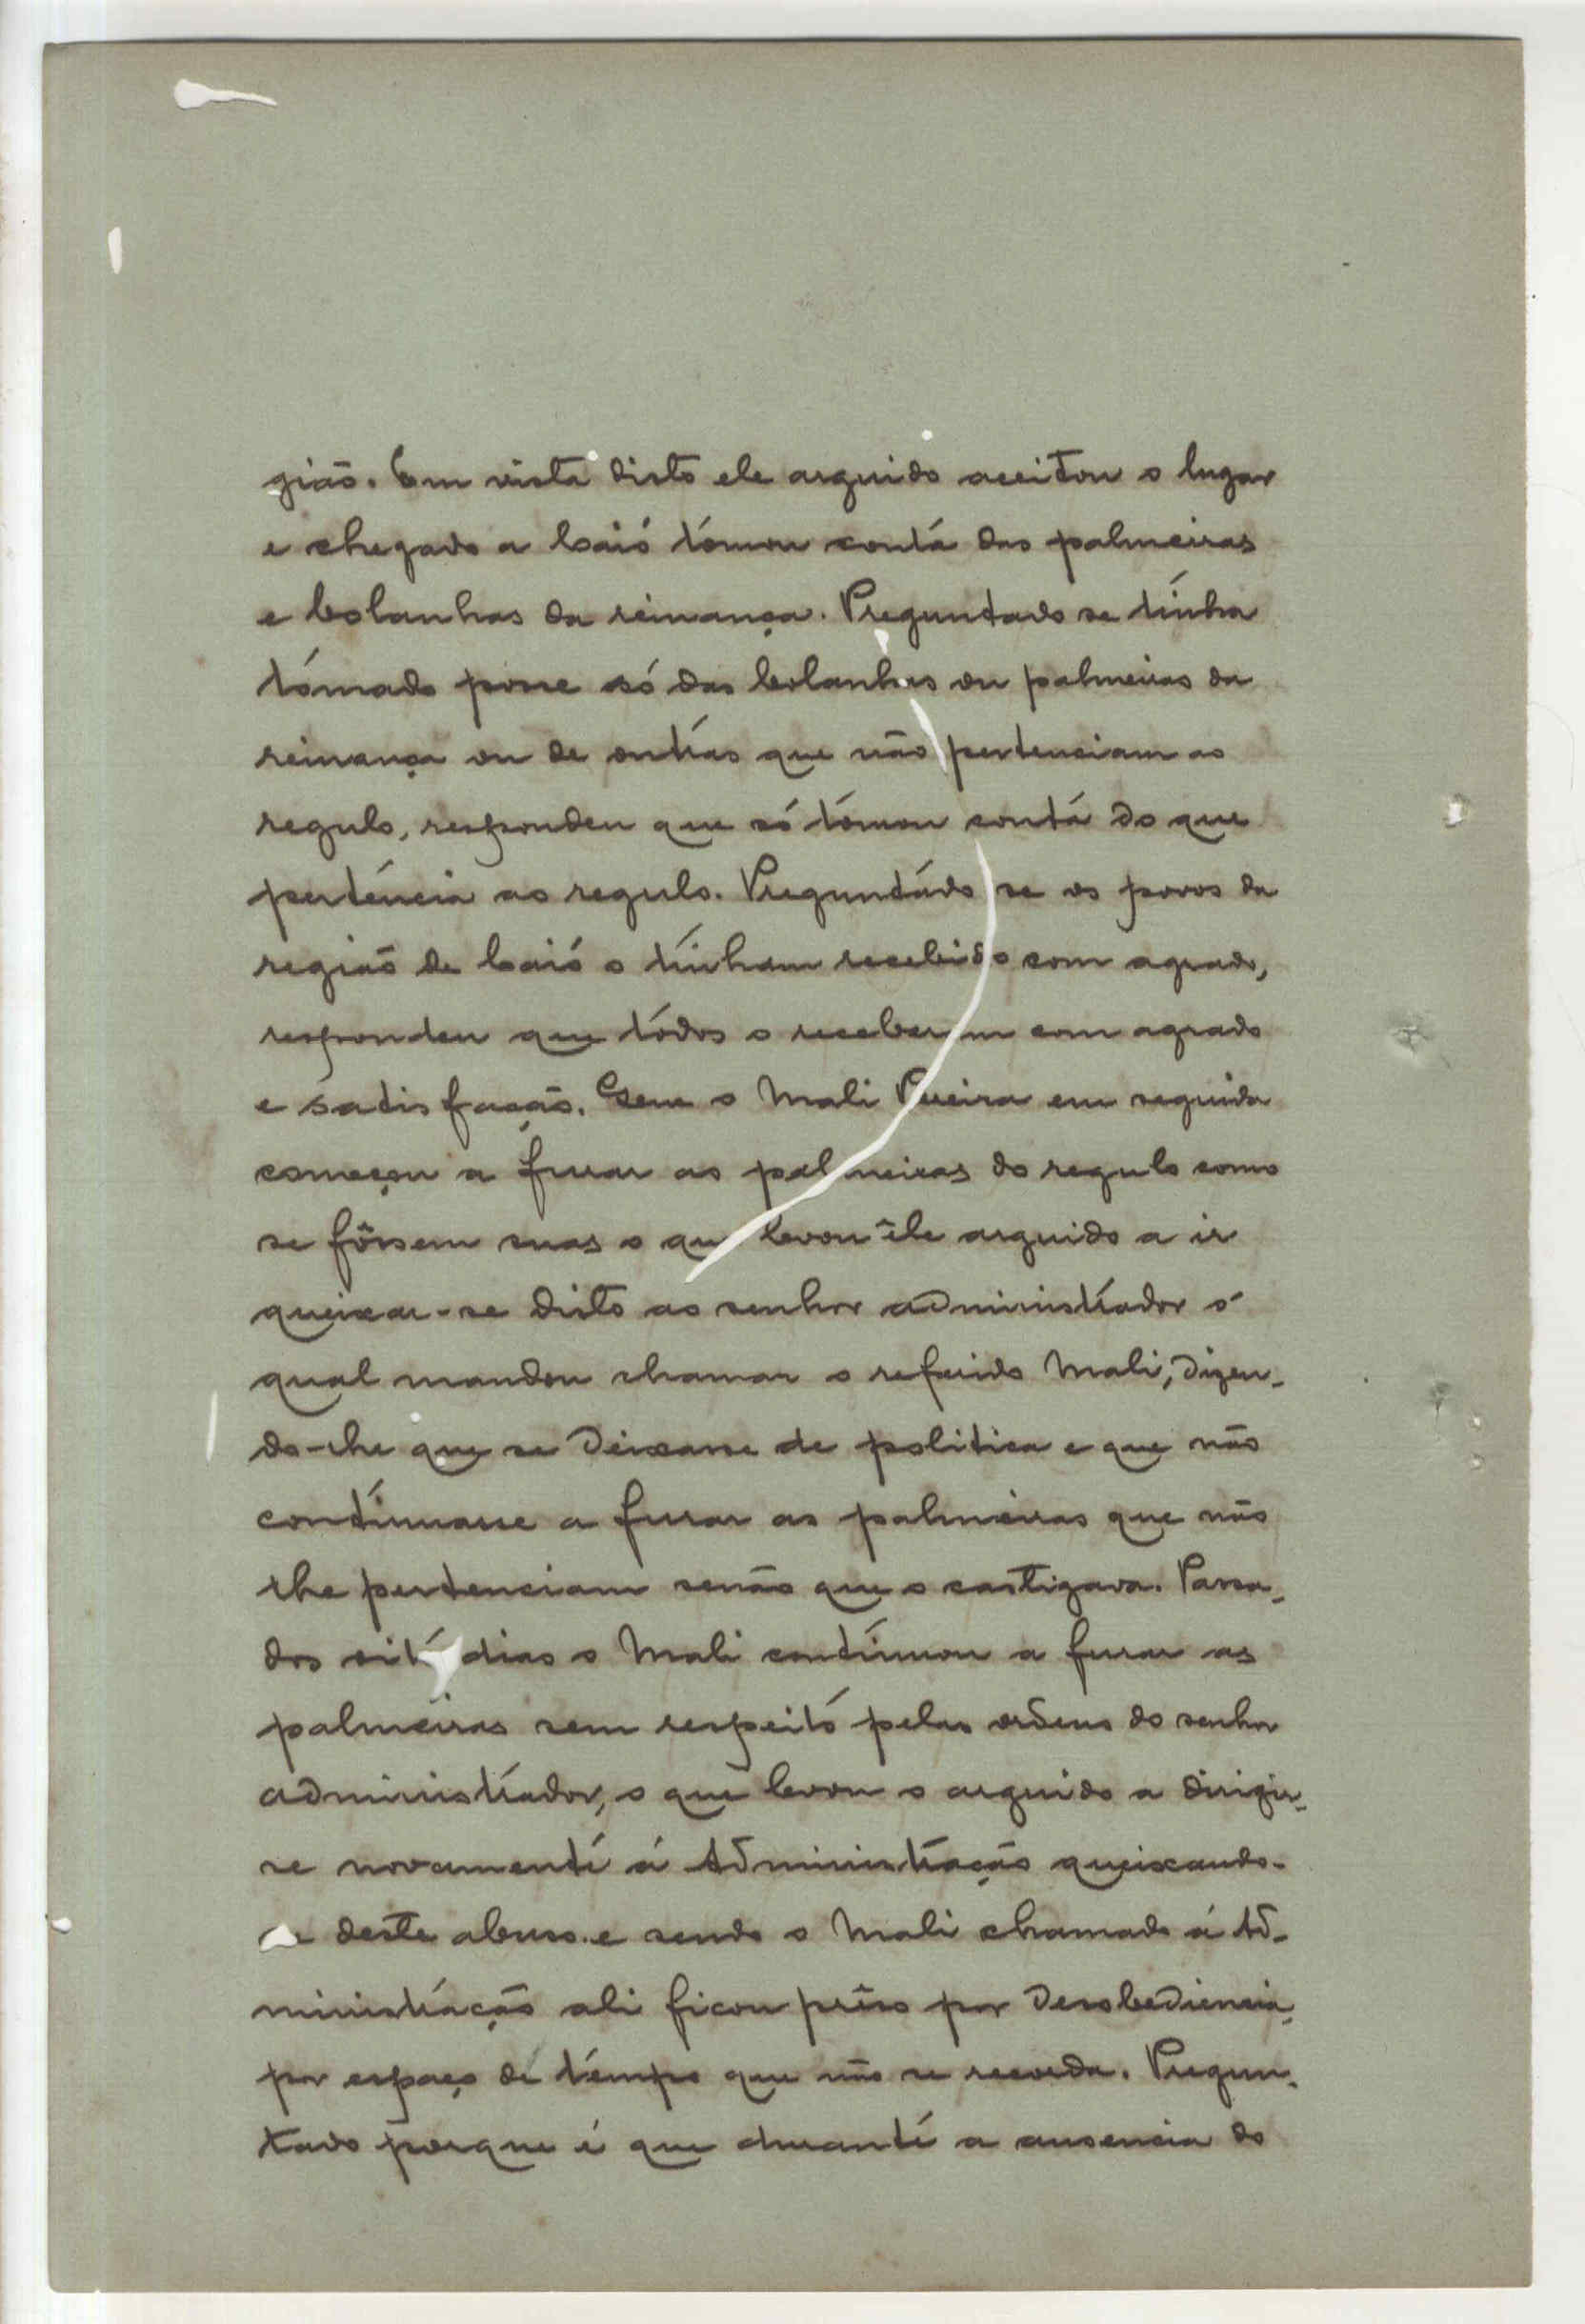 gião. Em vista disto ele arguido aceitou o lugar
e chegado a Caió tómou contá das palmeiras
e bolanhas da reinança. Preguntado se tinha
tómado posse só das bolanhas ou palmeiras da
reinança ou de outras que não pertenciam ao
regulo, respondeu que só tómou contá do que
pertencia ao regulo. Preguntádo se os povos da
região de Caió o tinham recebido com agrado,
respondeu que tódos o receberam com agrado
e satisfação. Que o Mali Vieira em seguida
começou a furar as palmeiras do regulo como
se fôssem suas o que levou êle arguido a ir
queixar-se disto ao senhor administrador o
qual mandou chamar o referido Mali, dizen-
do-lhe que se deixasse de politica e que não
continuasse a furar as palmeiras que não
lhe pertenciam senão que o castigava. Passa-
dos oito dias o Mali continuou a furar as
palmeiras sem respeitó pelas ordens do senhor
administrador, o que levou o arguido a dirigir-
se novamente á Administração queixando-
se deste abuso e sendo o Mali chamado á Ad-
ministração ali ficou prêso por desobediencia,
por espaço de tempo que não se recorda. Pregun-
tado porque é que durante a ausencia do